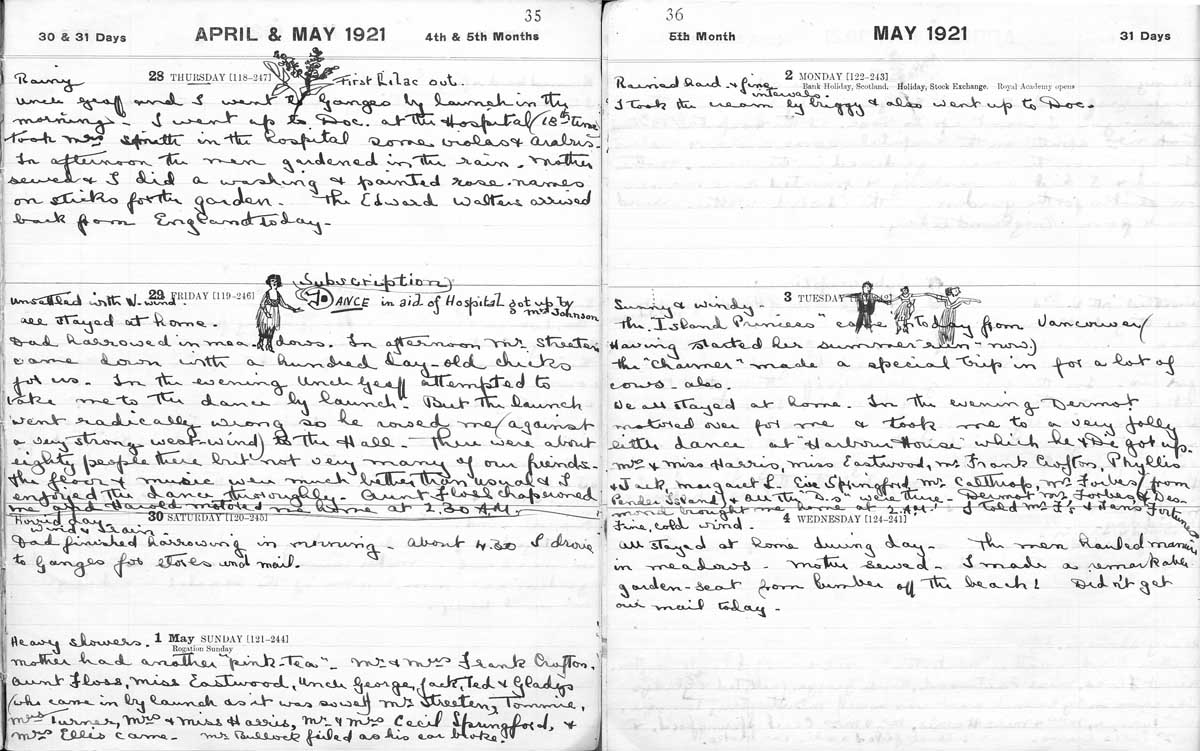 35
30 & 31 Days APRIL & MAY 1921 4th & 5th Months
Rainy 28 THURSDAY [118-247] First Lilac out.
Uncle Geoff and I went to Ganges by launch in the
morning. I went up to Doc. at the Hospital (18th time
took Mrs Smith in the hospital some violas & arabis.
In afternoon the men gardened in the rain. Mother
sewed & I did a washing & painted rose-names
on sticks for the garden. The Edward Walters arrived
back from England today.
29 FRIDAY [119-246] Subscription
Unsettled with W-wind. DANCE in aid of Hospital got up by
Mrs Johnson
all stayed at home.
Dad harrowed in meadows. In afternoon Mr. Streeten
came down with a hundred day-old chicks
for us. In the evening Uncle Geoff attempted to
take me to the dance by launch. But the launch
went radically wrong so he rowed me (against
a very strong west-wind) to the Hall. There were about
eighty people there but not very many of our friends.
The floor & music were much better than usual & I
enjoyed the dance thoroughly. Aunt Floss chaperoned
me and Harold motored me home at 2.30 A.M.
Horrid day.
Wind & rain 30 SATURDAY [120-245]
Dad finished harrowing in morning. About 4.30 I drove
to Ganges for stores and mail.
Heavy showers. 1 May SUNDAY [121-244]
Rogation Sunday
Mother had another "pink-tea". Mr & Mrs Frank Crofton,
Aunt Floss, Miss Eastwood, Uncle George, Jack, Ted & Gladys
(who came in by launch as it was so wet) Mr Streeten, Tommie,
Mrs Turner, Mrs & Miss Harris, Mr. & Mrs Cecil Springford, &
Mrs Ellis came. Mr Bullock failed as his car broke.
36
5th Month MAY 1921 31 Days
2 MONDAY [122-243]
Bank Holiday, Scotland. Holiday, Stock Exchange. Royal Academy opens
Rained hard & fine intervals.
I took the cream by buggy & also went up to Doc.
3 TUESDAY
Sunny & windy.
The "Island Princess" came in today from Vancouver (
Having started her summer run now.)
The "Charmer" made a special trip in for a lot of
cows also.
We all stayed at home. In the evening Dermot
motored over for me & took me to a very jolly
little dance at "Harbour House" which he & De got up.
Mrs & Miss Harris, Miss Eastwood, Mr Frank Crofton, Phyllis
& Jack, Margaret L. Cecil Springford, Mr Calthrop, Mr Forbes (from
Pender Island) & all the "D.s" were there. Dermot Mr. Forbes & Des-
mond brought me home at 2 A.M.! I told Mr F's & Dean's Fortune
4 WEDNESDAY [124-241]
Fine, cold wind.
All stayed at home during day. The men hauled manure
in meadows. Mother sewed. I made a remarkable
garden-seat from lumber off the beach! Didn't get
our mail today.